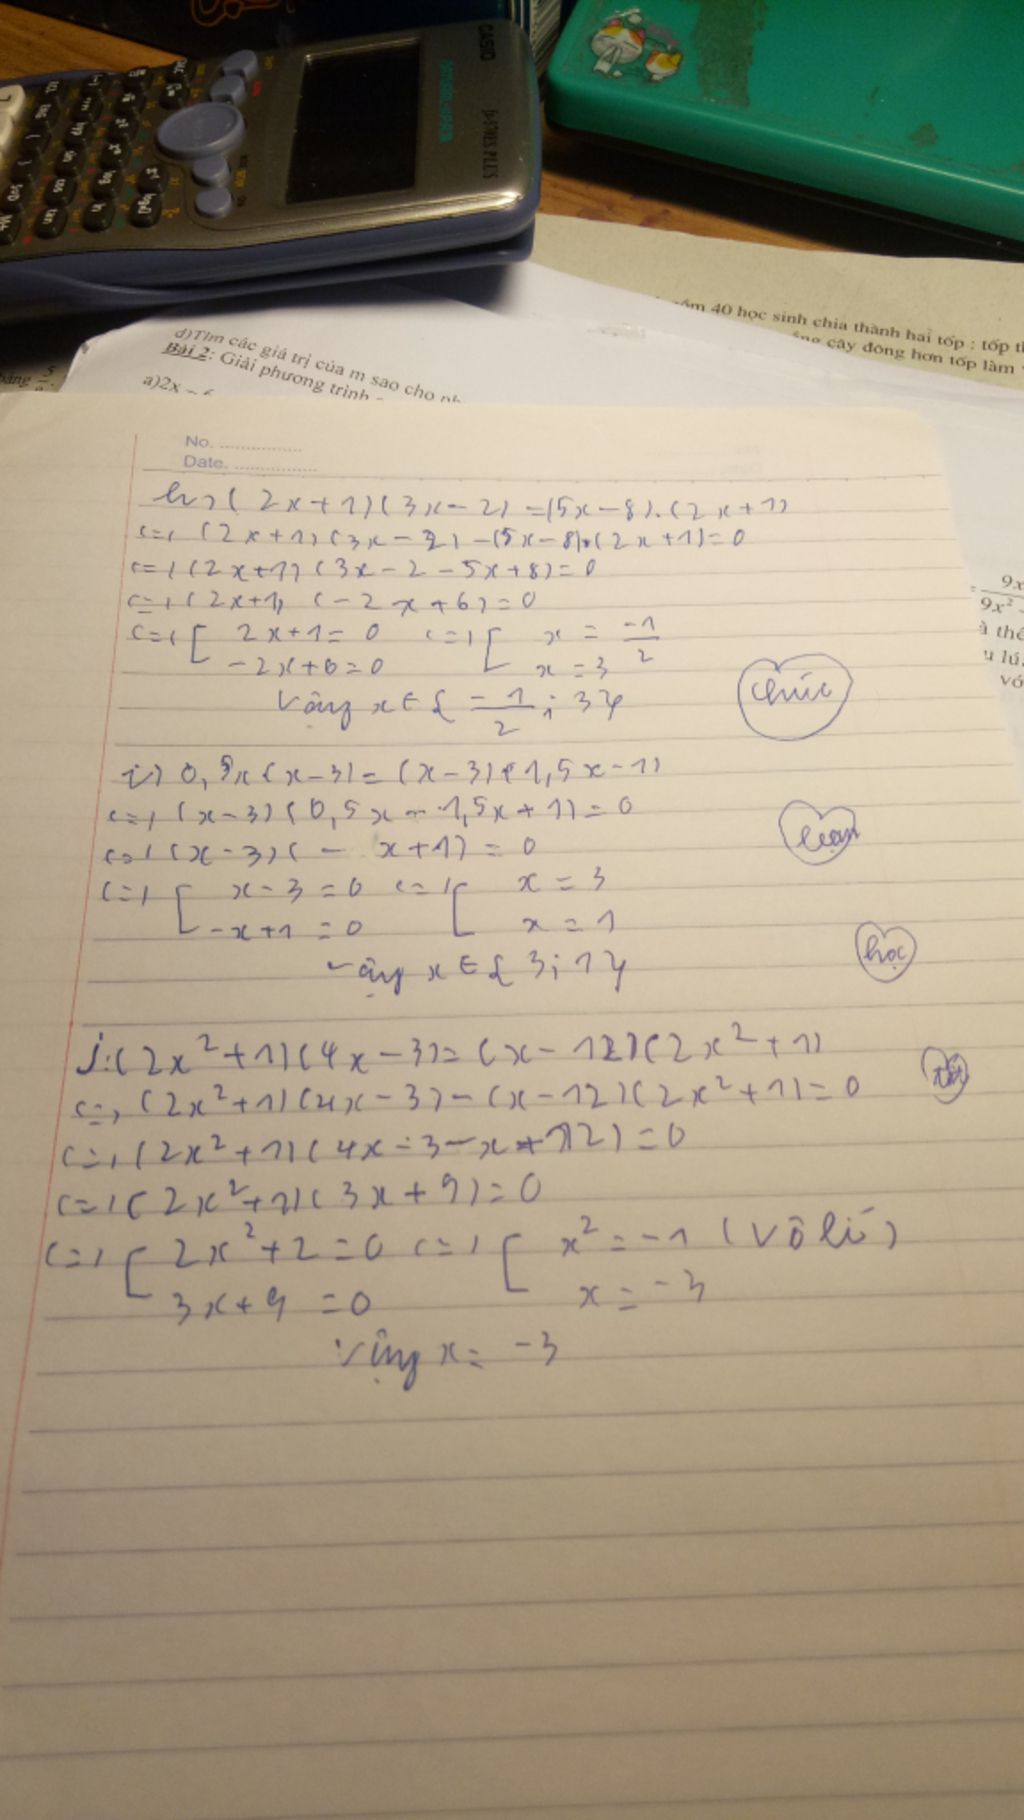 CASIO
fx-570ES PLUS
gồm 40 học sinh chia thành hai tốp : tốp
cây đông hơn tốp làm
d)Tìm các giá trị của m sao cho
Bài 2: Giải phương trình
a)2x –
No.
Date.
h) (2x+1)(3x-2) = (5x-8).(2x+1)
<=> (2x+1)(3x-2) - (5x-8).(2x+1) = 0
<=> (2x+1)(3x-2-5x+8) = 0
<=> (2x+1)(-2x+6) = 0
<=> [ 2x+1 = 0 <=> [ x = -1/2
-2x+6 = 0 x = 3
Vậy x ∈ { -1/2 ; 3 }
chúc
i) 0,5x(x-3) = (x-3)(1,5x-1)
<=> (x-3)(0,5x - 1,5x+1) = 0
<=> (x-3)(- x+1) = 0
<=> [ x-3 = 0 <=> [ x = 3
-x+1 = 0 x = 1
Vậy x ∈ { 3; 1 }
bạn
học
tốt
j. (2x²+1)(4x-3) = (x-12)(2x²+1)
<=> (2x²+1)(4x-3) - (x-12)(2x²+1) = 0
<=> (2x²+1)(4x-3-x+12) = 0
<=> (2x²+1)(3x+9) = 0
<=> [ 2x²+2 = 0 <=> [ x² = -1 (Vô lí)
3x+9 = 0 x = -3
Vậy x = -3
9x
9x²